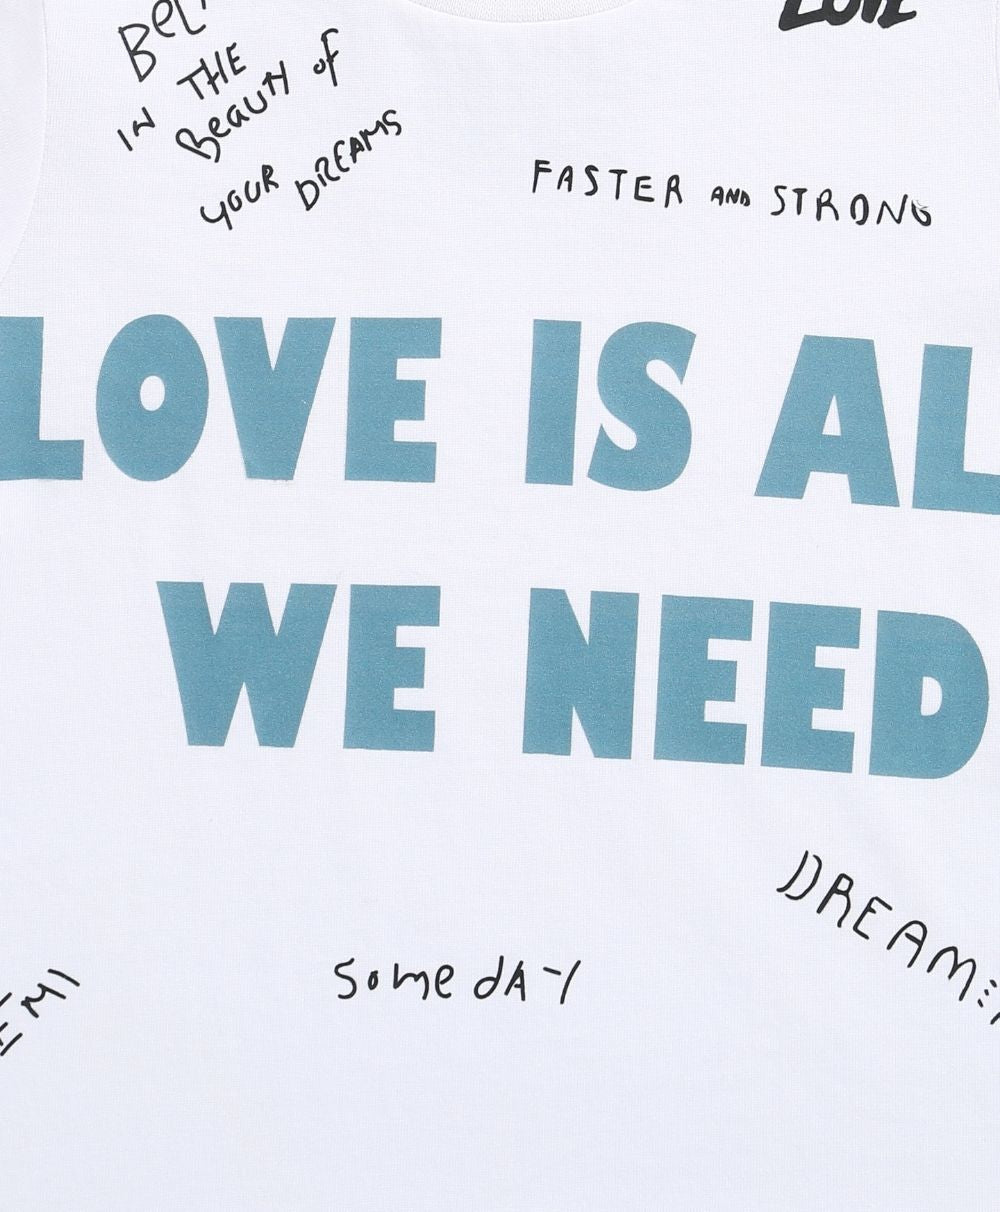 BeL
IN THE
Beauty of
YOUR DREAMS
LOVE
FASTER AND STRONG
LOVE IS AL
WE NEED
DREAM
SomedAY
EMI